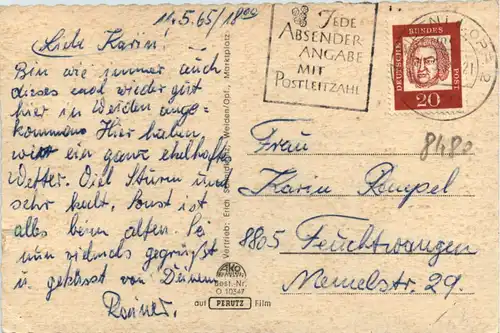 11.5.65/18⁰⁰
Liebe Karin!
Bin wie immer auch
dieses mal wieder gut
hier in Weiden ange-
kommen. Hier haben
wir ein ganz ekelhaftes
Wetter. Viel Sturm und
sehr kalt. Sonst ist
alles beim alten. Sei
nun vielmals gegrüßt
u. geküsst von Deinem
Rainer.
JEDE
ABSENDER-
ANGABE
MIT
POSTLEITZAHL
DEUTSCHE BUNDESPOST
20
8480
Frau
Karin Pompel
8805 Feuchtwangen
Memelstr. 29.
Vertrieb: Erich Weiden/Opf., Marktplatz
AKO
Best.-Nr.
O 10347
auf PERUTZ Film